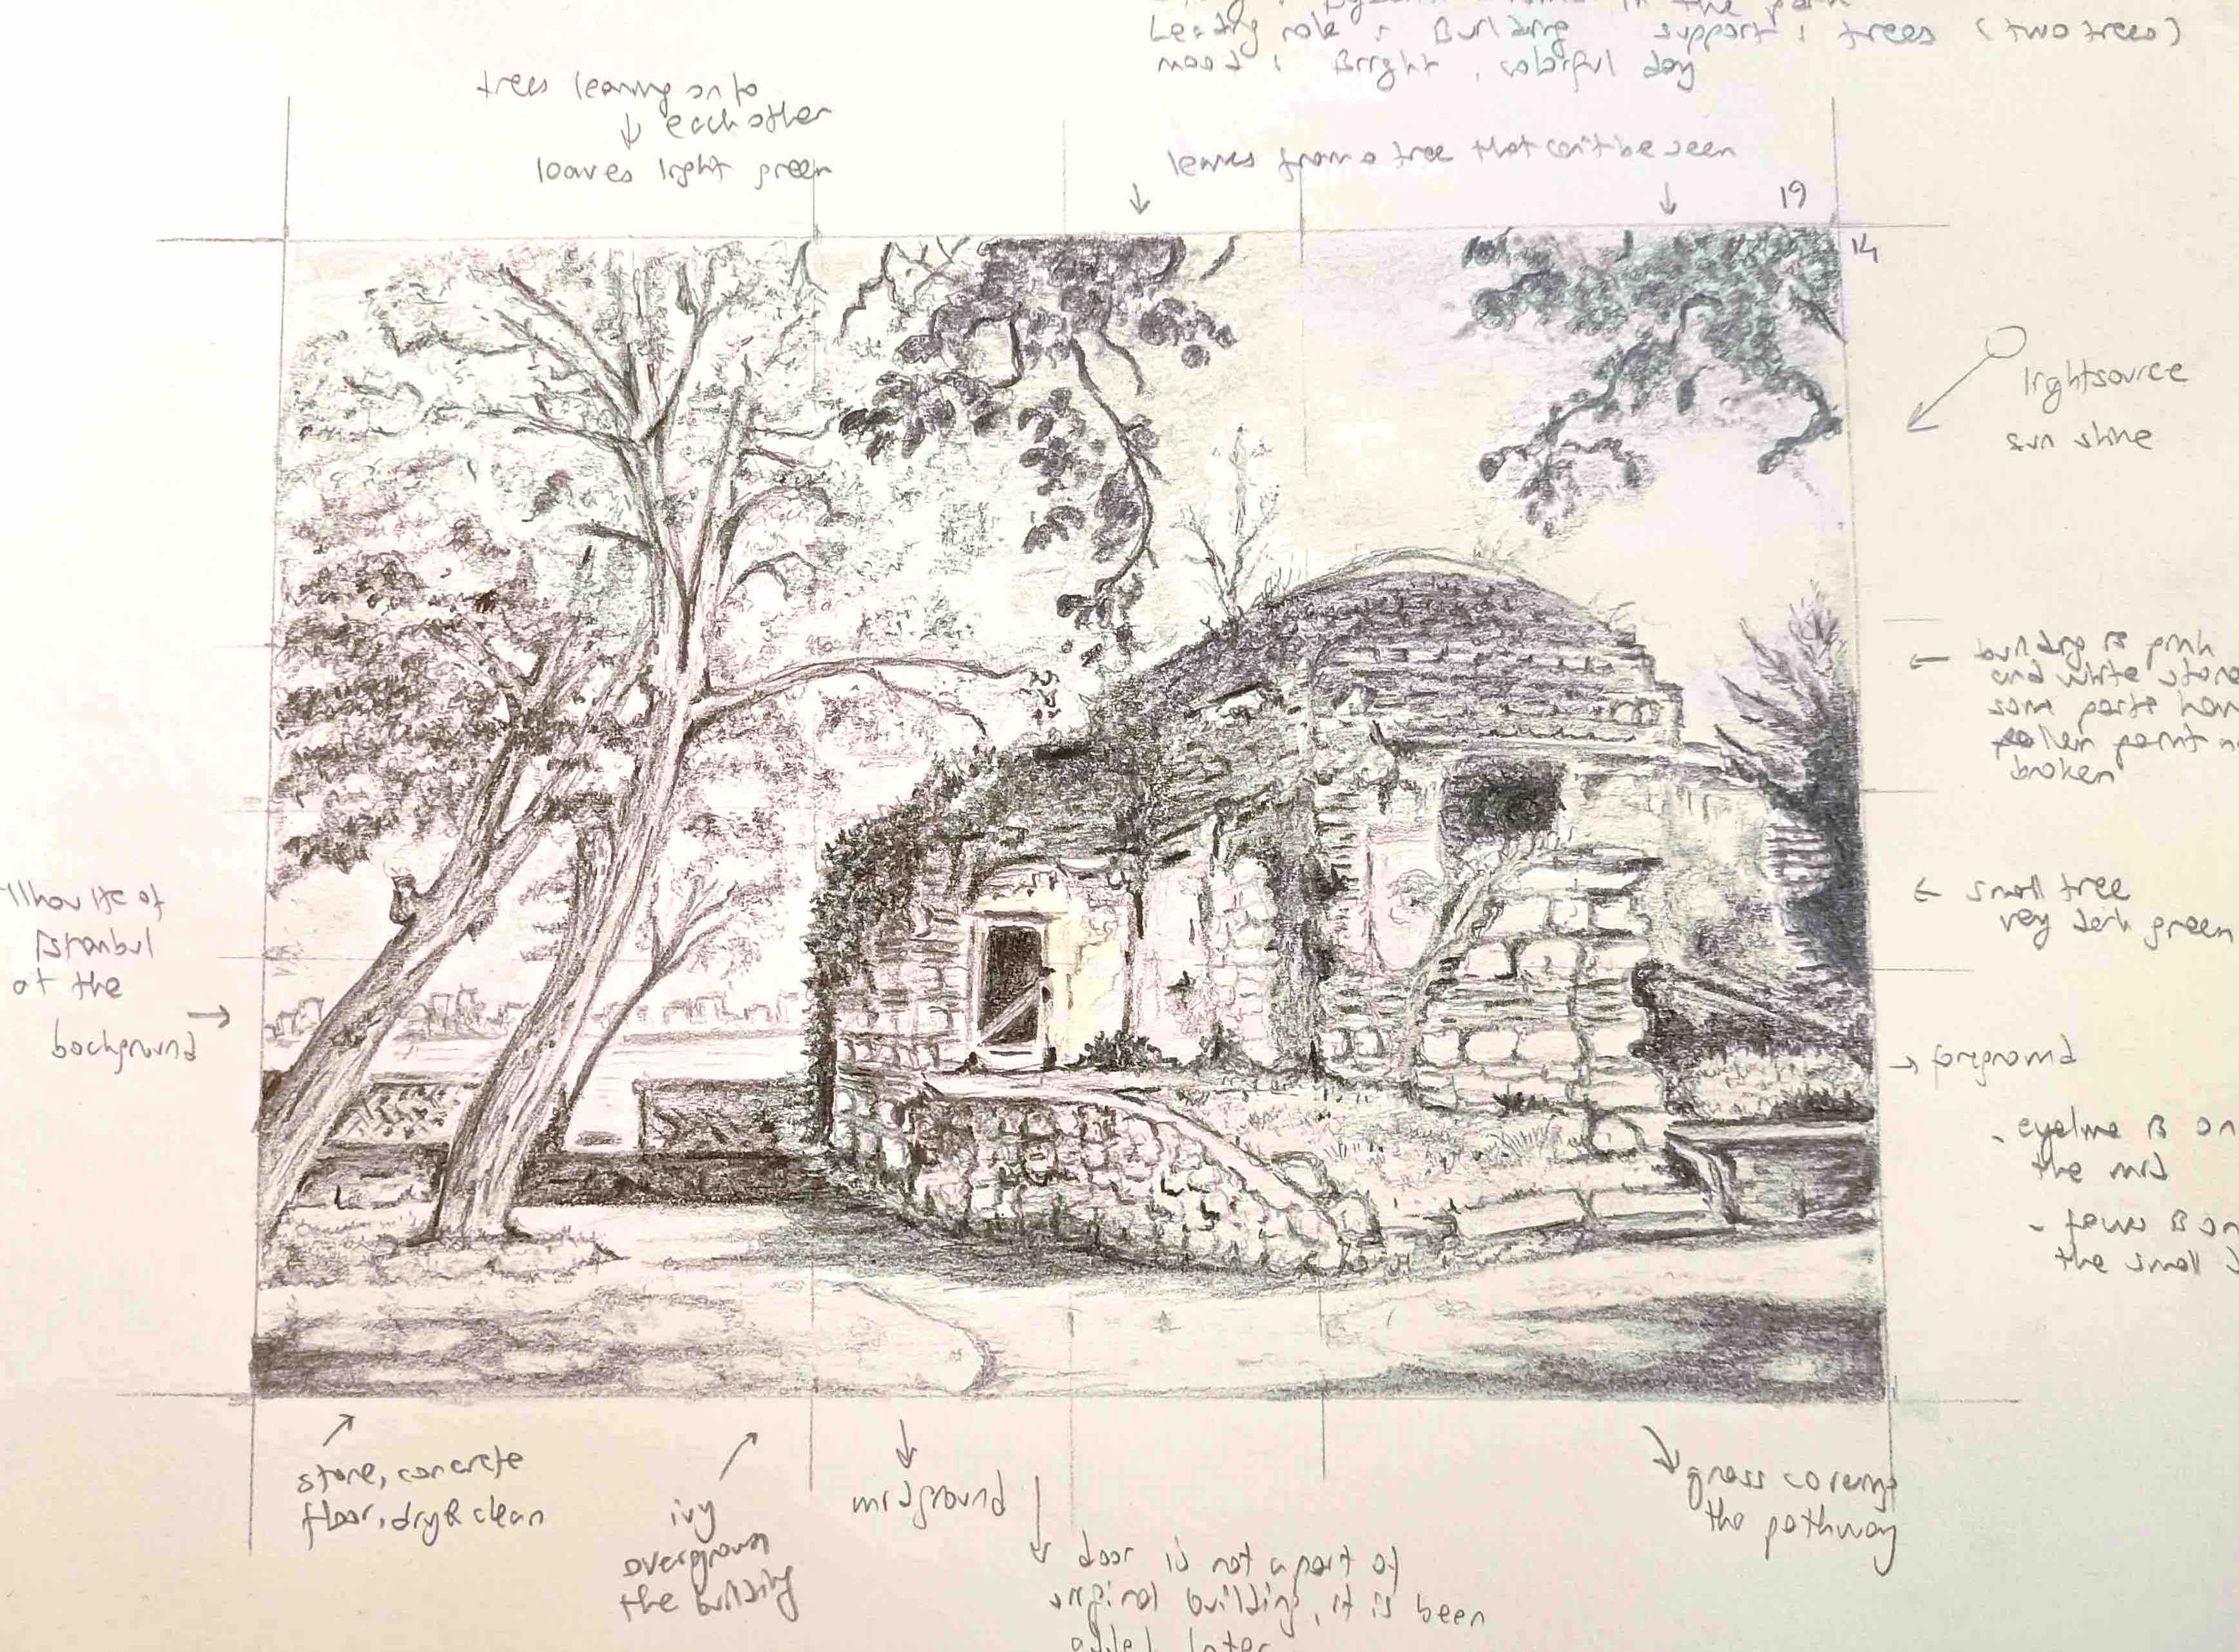 in the park
Leading role : Building support : trees (two trees)
mood : Bright, colorful day
trees leaning onto
each other
leaves light green
leaves from a tree that can't be seen
19
14
lightsource
sun shine
building is pink
and white stone
some parts
paint
broken
small tree
very dark green
of
Istanbul
at the
background
foreground
- eyeline is on
the mid
- is on
the small
stone, concrete
floor, dry & clean
ivy
overgrown
the building
midground
door is not a part of
original building, it is been
added later
grass covering
the pathway